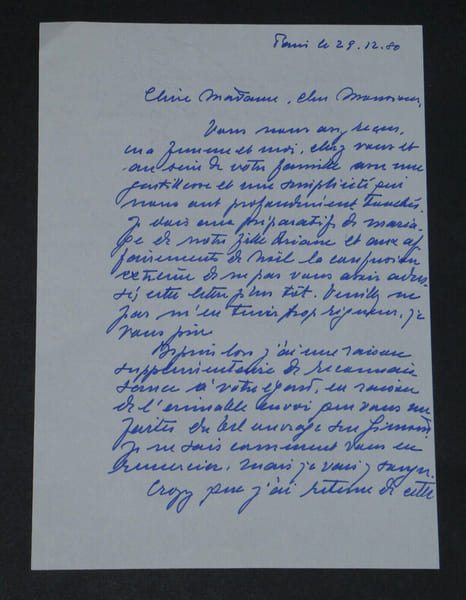 Paris le 29.12.80
Chère Madame, cher Monsieur,
Vous nous avez reçus,
ma femme et moi, chez vous et
au sein de votre famille avec une
gentillesse et une simplicité qui
nous ont profondément touchés.
Je dois aux préparatifs de maria-
ge de notre fille et aux af
fairements de Noël la confusion
extrême de ne pas vous avoir adres-
sé cette lettre plus tôt. Veuillez ne
pas m'en tenir trop rigueur, je
vous prie
Depuis lors j'ai une raison
supplémentaire de reconnais
sance à votre égard, en raison
de l'aimable envoi que vous me
faites du bel ouvrage sur
Je ne sais comment vous en
remercier, mais je vais y songer.
Croyez que j'ai retenu de cette